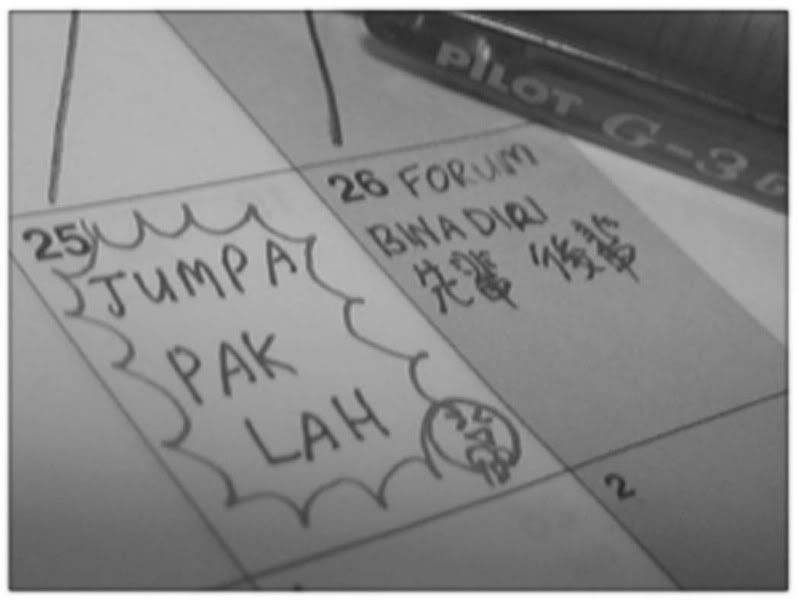 PILOT G-3
25
JUMPA
PAK
LAH
26 FORUM
BINA DIRI
先輩 後輩
2